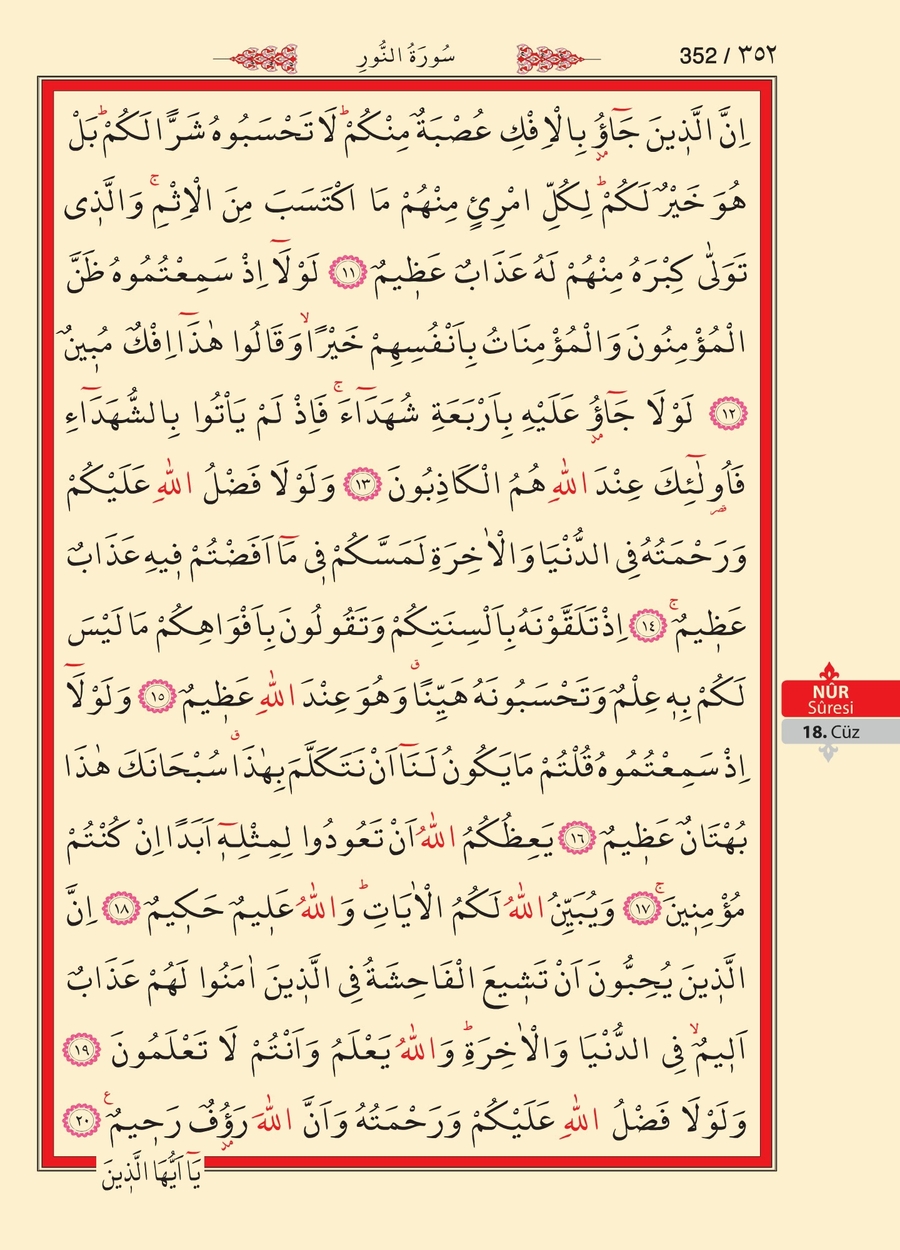 سُورَةُ النُّورِ
352 / ٣٥٢
اِنَّ الَّذ۪ينَ جَٓاؤُ۫ بِالْاِفْكِ عُصْبَةٌ مِنْكُمْۜ لَا تَحْسَبُوهُ شَرًّا لَكُمْۜ بَلْ
هُوَ خَيْرٌ لَكُمْۜ لِكُلِّ امْرِئٍ مِنْهُمْ مَا اكْتَسَبَ مِنَ الْاِثْمِۚ وَالَّذ۪ى
تَوَلّٰى كِبْرَهُ مِنْهُمْ لَهُ عَذَابٌ عَظ۪يمٌ ﴿١١﴾ لَوْلَٓا اِذْ سَمِعْتُمُوهُ ظَنَّ
الْمُؤْمِنُونَ وَالْمُؤْمِنَاتُ بِاَنْفُسِهِمْ خَيْرًاۙ وَقَالُوا هٰذَٓا اِفْكٌ مُب۪ينٌ
﴿١٢﴾ لَوْلَا جَٓاؤُ۫ عَلَيْهِ بِاَرْبَعَةِ شُهَدَٓاءَۚ فَاِذْ لَمْ يَاْتُوا بِالشُّهَدَٓاءِ
فَاُو۬لٰٓئِكَ عِنْدَ اللّٰهِ هُمُ الْكَاذِبُونَ ﴿١٣﴾ وَلَوْلَا فَضْلُ اللّٰهِ عَلَيْكُمْ
وَرَحْمَتُهُ فِى الدُّنْيَا وَالْاٰخِرَةِ لَمَسَّكُمْ ف۪ى مَٓا اَفَضْتُمْ ف۪يهِ عَذَابٌ
عَظ۪يمٌۚ ﴿١٤﴾ اِذْ تَلَقَّوْنَهُ بِاَلْسِنَتِكُمْ وَتَقُولُونَ بِاَفْوَاهِكُمْ مَا لَيْسَ
لَكُمْ بِه۪ عِلْمٌ وَتَحْسَبُونَهُ هَيِّنًاۗ وَهُوَ عِنْدَ اللّٰهِ عَظ۪يمٌ ﴿١٥﴾ وَلَوْلَٓا
اِذْ سَمِعْتُمُوهُ قُلْتُمْ مَا يَكُونُ لَنَٓا اَنْ نَتَكَلَّمَ بِهٰذَاۗ سُبْحَانَكَ هٰذَا
بُهْتَانٌ عَظ۪يمٌ ﴿١٦﴾ يَعِظُكُمُ اللّٰهُ اَنْ تَعُودُوا لِمِثْلِه۪ٓ اَبَدًا اِنْ كُنْتُمْ
مُؤْمِن۪ينَۚ ﴿١٧﴾ وَيُبَيِّنُ اللّٰهُ لَكُمُ الْاٰيَاتِۜ وَاللّٰهُ عَل۪يمٌ حَك۪يمٌ ﴿١٨﴾ اِنَّ
الَّذ۪ينَ يُحِبُّونَ اَنْ تَش۪يعَ الْفَاحِشَةُ فِى الَّذ۪ينَ اٰمَنُوا لَهُمْ عَذَابٌ
اَل۪يمٌۙ فِى الدُّنْيَا وَالْاٰخِرَةِۜ وَاللّٰهُ يَعْلَمُ وَاَنْتُمْ لَا تَعْلَمُونَ ﴿١٩﴾
وَلَوْلَا فَضْلُ اللّٰهِ عَلَيْكُمْ وَرَحْمَتُهُ وَاَنَّ اللّٰهَ رَؤُ۫فٌ رَح۪يمٌ۟ ﴿٢٠﴾
يَٓا اَيُّهَا الَّذ۪ينَ
NÛR
Sûresi
18. Cüz